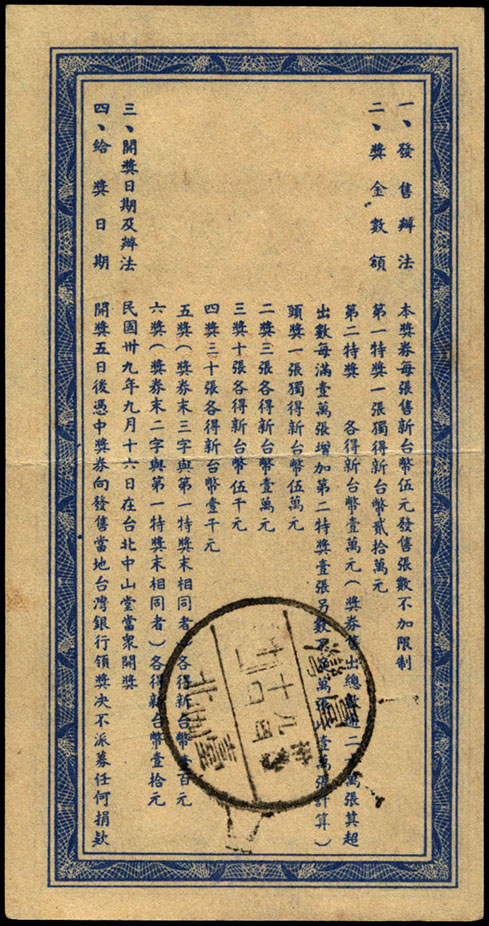 一、發售辦法 本獎券每張售新台幣伍元發售張數不加限制
二、獎金數額 第一特獎一張獨得新台幣貳拾萬元
第二特獎 各得新台幣壹萬元(獎券售出總數 二 萬張其超
出數每滿壹萬張增加第二特獎壹張另數 萬張 壹萬張計算)
頭獎一張獨得新台幣伍萬元
二獎三張各得新台幣壹萬元
三獎十張各得新台幣伍千元
四獎三十張各得新台幣壹千元
五獎(獎券末三字與第一特獎末相同者)各得新台幣壹百元
六獎(獎券末二字與第一特獎末相同者)各得新台幣壹拾元
三、開獎日期及辦法 民國卅九年九月十六日在台北中山堂當衆開獎
四、給獎日期 開獎五日後憑中獎券向發售當地台灣銀行領獎決不派募任何捐欵